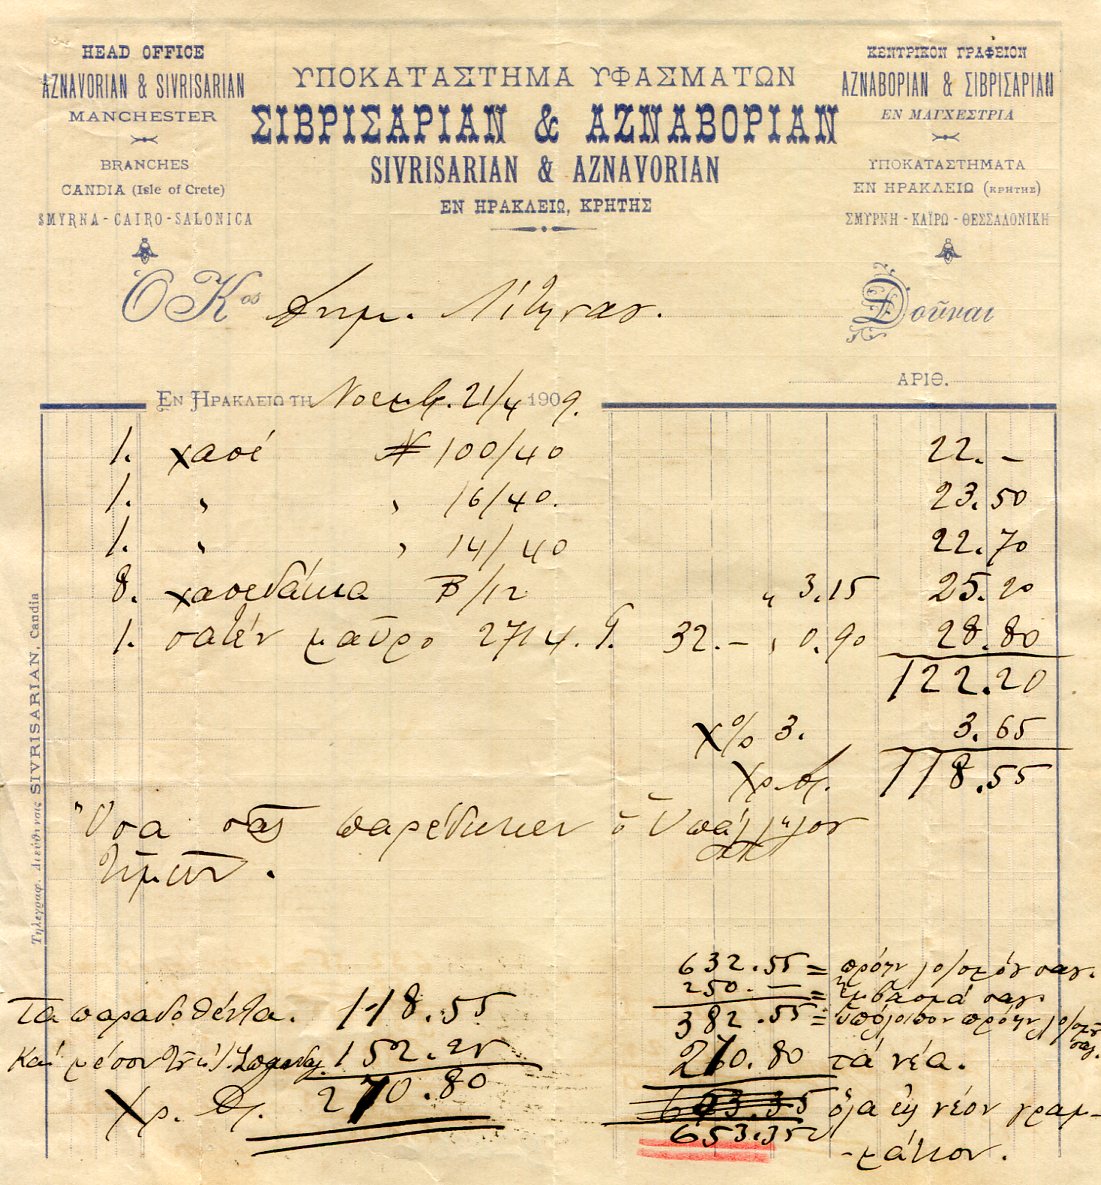 HEAD OFFICE
AZNAVORIAN & SIVRISARIAN
MANCHESTER
BRANCHES
CANDIA (Isle of Crete)
SMYRNA - CAIRO - SALONICA
ΥΠΟΚΑΤΑΣΤΗΜΑ ΥΦΑΣΜΑΤΩΝ
ΣΙΒΡΙΣΑΡΙΑΝ & ΑΖΝΑΒΟΡΙΑΝ
SIVRISARIAN & AZNAVORIAN
ΕΝ ΗΡΑΚΛΕΙΩ, ΚΡΗΤΗΣ
ΚΕΝΤΡΙΚΟΝ ΓΡΑΦΕΙΟΝ
ΑΖΝΑΒΟΡΙΑΝ & ΣΙΒΡΙΣΑΡΙΑΝ
ΕΝ ΜΑΓΧΕΣΤΡΙΑ
ΥΠΟΚΑΤΑΣΤΗΜΑΤΑ
ΕΝ ΗΡΑΚΛΕΙΩ (ΚΡΗΤΗΣ)
ΣΜΥΡΝΗ - ΚΑΪΡΩ - ΘΕΣΣΑΛΟΝΙΚΗ
Ὁ Κος Δημ. Δοῦναι
ΑΡΙΘ.
ΕΝ ΗΡΑΚΛΕΙΩ ΤΗ Νοεμβ. 21/4 1909.
1. χασέ № 100/40 22. –
1. " " 16/40. 23.50
1. " " 14/40 22.70
8. χασεδάκια /12 " 3.15 25.20
1. σατέν μαῦρο 2714. 32.– " 0.90 28.80
122.20
χ% 3. 3.65
Χρ. Δρ. 118.55
Ὅσα σᾶς παρέδωκεν ὁ Ὑπάλληλον
ἡμῶν.
Τηλεγραφ. Διεύθυνσις SIVRISARIAN, Candia
632.55 = πρώην σας
250.– = ἔμβασμά σας
382.55 = ὑπόλοιπον πρώην σας
Τα παραδοθέντα. 118.55
270.80 τά νέα.
Καί μέσον 152.25
Χρ. Δρ. 270.80
653.35 ὅλα εἰς νέον γραμ-
653.35
-μάτιον.